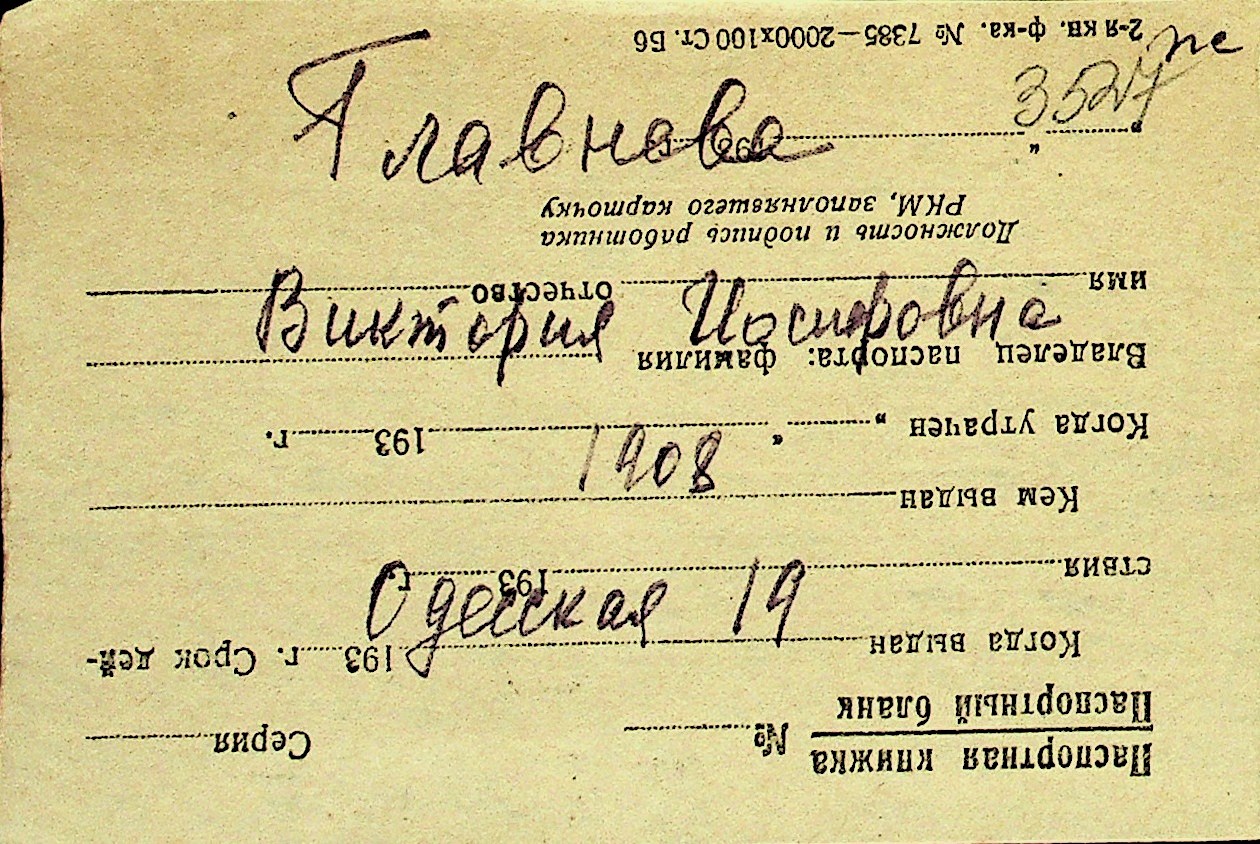 пс
3527
Главнова
Виктория Иосифовна
1908
Одесская 19
Паспортная книжка № Серия
Паспортный бланк
Когда выдан 193 г. Срок дей-
ствия 193 г.
Кем выдан
Когда утрачен „ “ 193 г.
Владелец паспорта: фамилия
имя отчество
Должность и подпись работника
РКМ, заполнявшего карточку
„ “ 193 г.
2-я кв. ф-ка. № 7385—2000х100 Ст. Б6